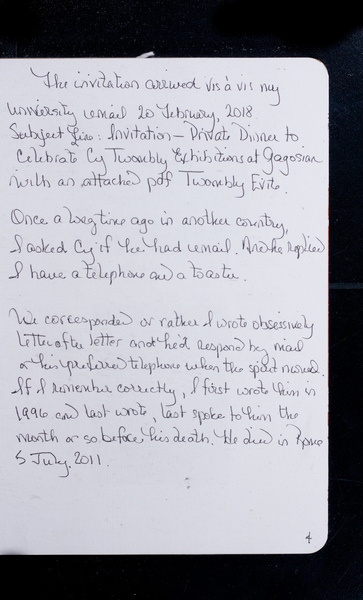 The invitation arrived vis à vis my
University email 20 February, 2018.
Subject Line: Invitation – Private Dinner to
Celebrate Cy Twombly Exhibitions at Gagosian
with an attached pdf Twombly Evite.
Once a long time ago in another country,
I asked Cy if he had email. And he replied
I have a telephone and a toaster.
We corresponded or rather I wrote obsessively
letter after letter and he'd respond by mail
or his preferred telephone when the spirit moved.
If I remember correctly, I first wrote him in
1996 and last wrote, last spoke to him the
month or so before his death. He died in Rome
5 July, 2011.
4